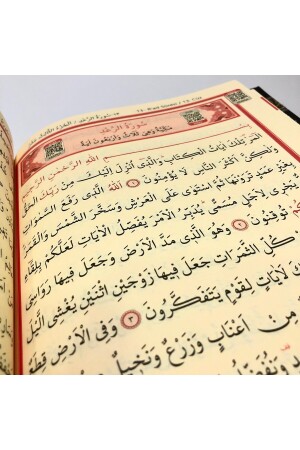 سُورَةُ الرَّعْدِ
بِسْــــمِ اللّٰهِ الرَّحْمٰنِ الرَّحِيمِ
الٓمٓرٰ تِلْكَ اٰيَاتُ الْكِتَابِ وَالَّذٖٓي اُنْزِلَ اِلَيْكَ مِنْ رَبِّكَ الْحَقُّ
وَلٰكِنَّ اَكْثَرَ النَّاسِ لَا يُؤْمِنُونَ ١ اَللّٰهُ الَّذٖي رَفَعَ السَّمٰوَاتِ
بِغَيْرِ عَمَدٍ تَرَوْنَهَا ثُمَّ اسْتَوٰى عَلَى الْعَرْشِ وَسَخَّرَ الشَّمْسَ وَالْقَمَرَ
يَجْرٖي لِاَجَلٍ مُسَمًّى يُدَبِّرُ الْاَمْرَ يُفَصِّلُ الْاٰيَاتِ لَعَلَّكُمْ بِلِقَٓاءِ
تُوقِنُونَ ٢ وَهُوَ الَّذٖي مَدَّ الْاَرْضَ وَجَعَلَ فٖيهَا رَوَاسِيَ
كُلِّ الثَّمَرَاتِ جَعَلَ فٖيهَا زَوْجَيْنِ اثْنَيْنِ يُغْشِي الَّيْلَ
لَاٰيَاتٍ لِقَوْمٍ يَتَفَكَّرُونَ ٣ وَفِي الْاَرْضِ قِطَعٌ
مِنْ اَعْنَابٍ وَزَرْعٌ وَنَخٖيلٌ
وَنُفَضِّلُ